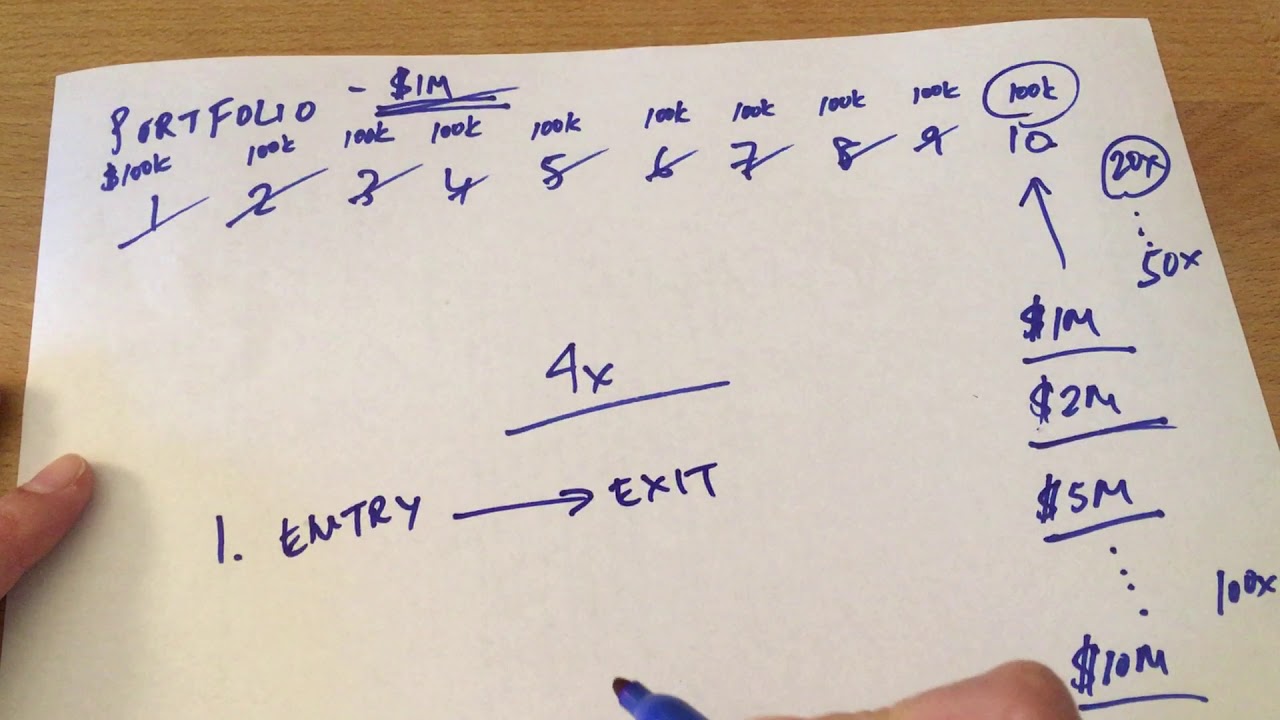 PORTFOLIO - $1M
$100k 100k 100k 100k 100k 100k 100k 100k 100k 100k
1 2 3 4 5 6 7 8 9 10
20x
50x
$1M
$2M
4x
$5M
1. ENTRY → EXIT
100x
$10M